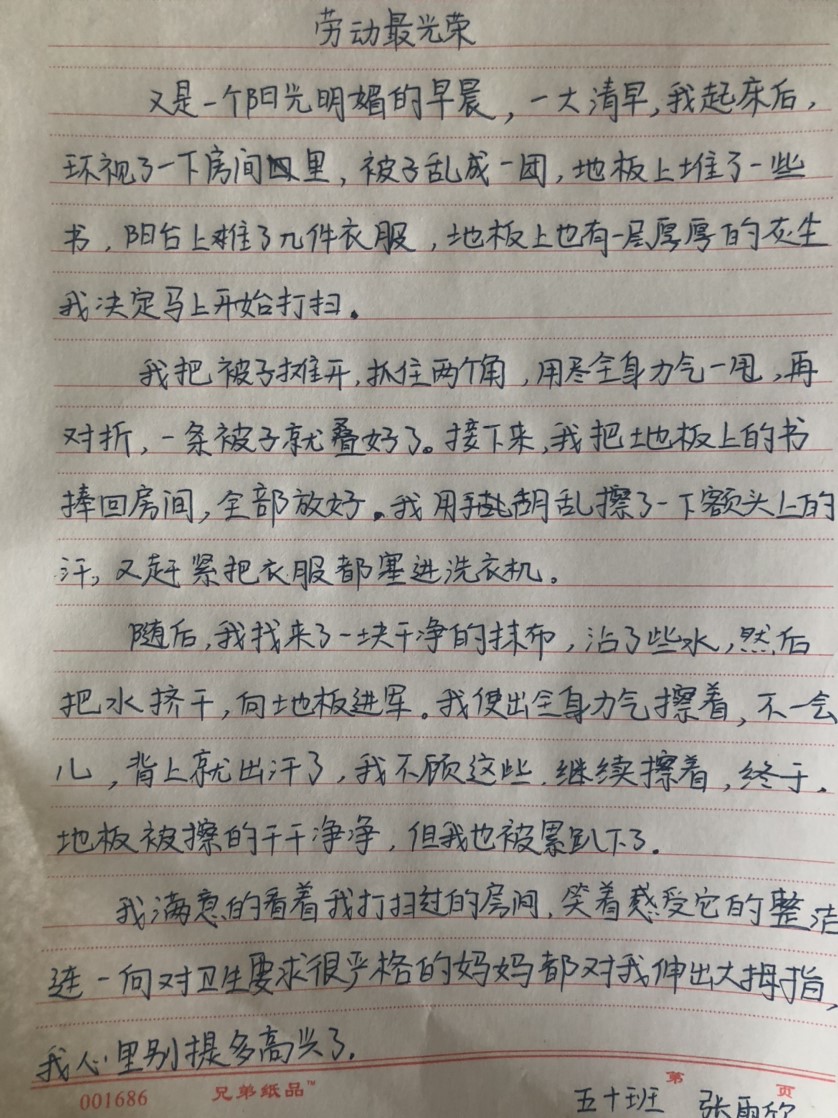 劳动最光荣
又是一个阳光明媚的早晨，一大清早，我起床后，
环视了一下房间里，被子乱成一团，地板上堆了一些
书，阳台上堆了几件衣服，地板上也有一层厚厚的灰尘
我决定马上开始打扫。
我把被子摊开，抓住两个角，用尽全身力气一甩，再
对折，一条被子就叠好了。接下来，我把地板上的书
捧回房间，全部放好。我用手胡乱擦了一下额头上的
汗，又赶紧把衣服都塞进洗衣机。
随后，我找来了一块干净的抹布，沾了些水，然后
把水挤干，向地板进军。我使出全身力气擦着，不一会
儿，背上就出汗了，我不顾这些，继续擦着，终于，
地板被擦的干干净净，但我也被累趴下了。
我满意的看着我打扫过的房间，笑着感受它的整洁
连一向对卫生要求很严格的妈妈都对我伸出大拇指，
我心里别提多高兴了。
001686 兄弟纸品™ 第 页
五十班 张雨欣